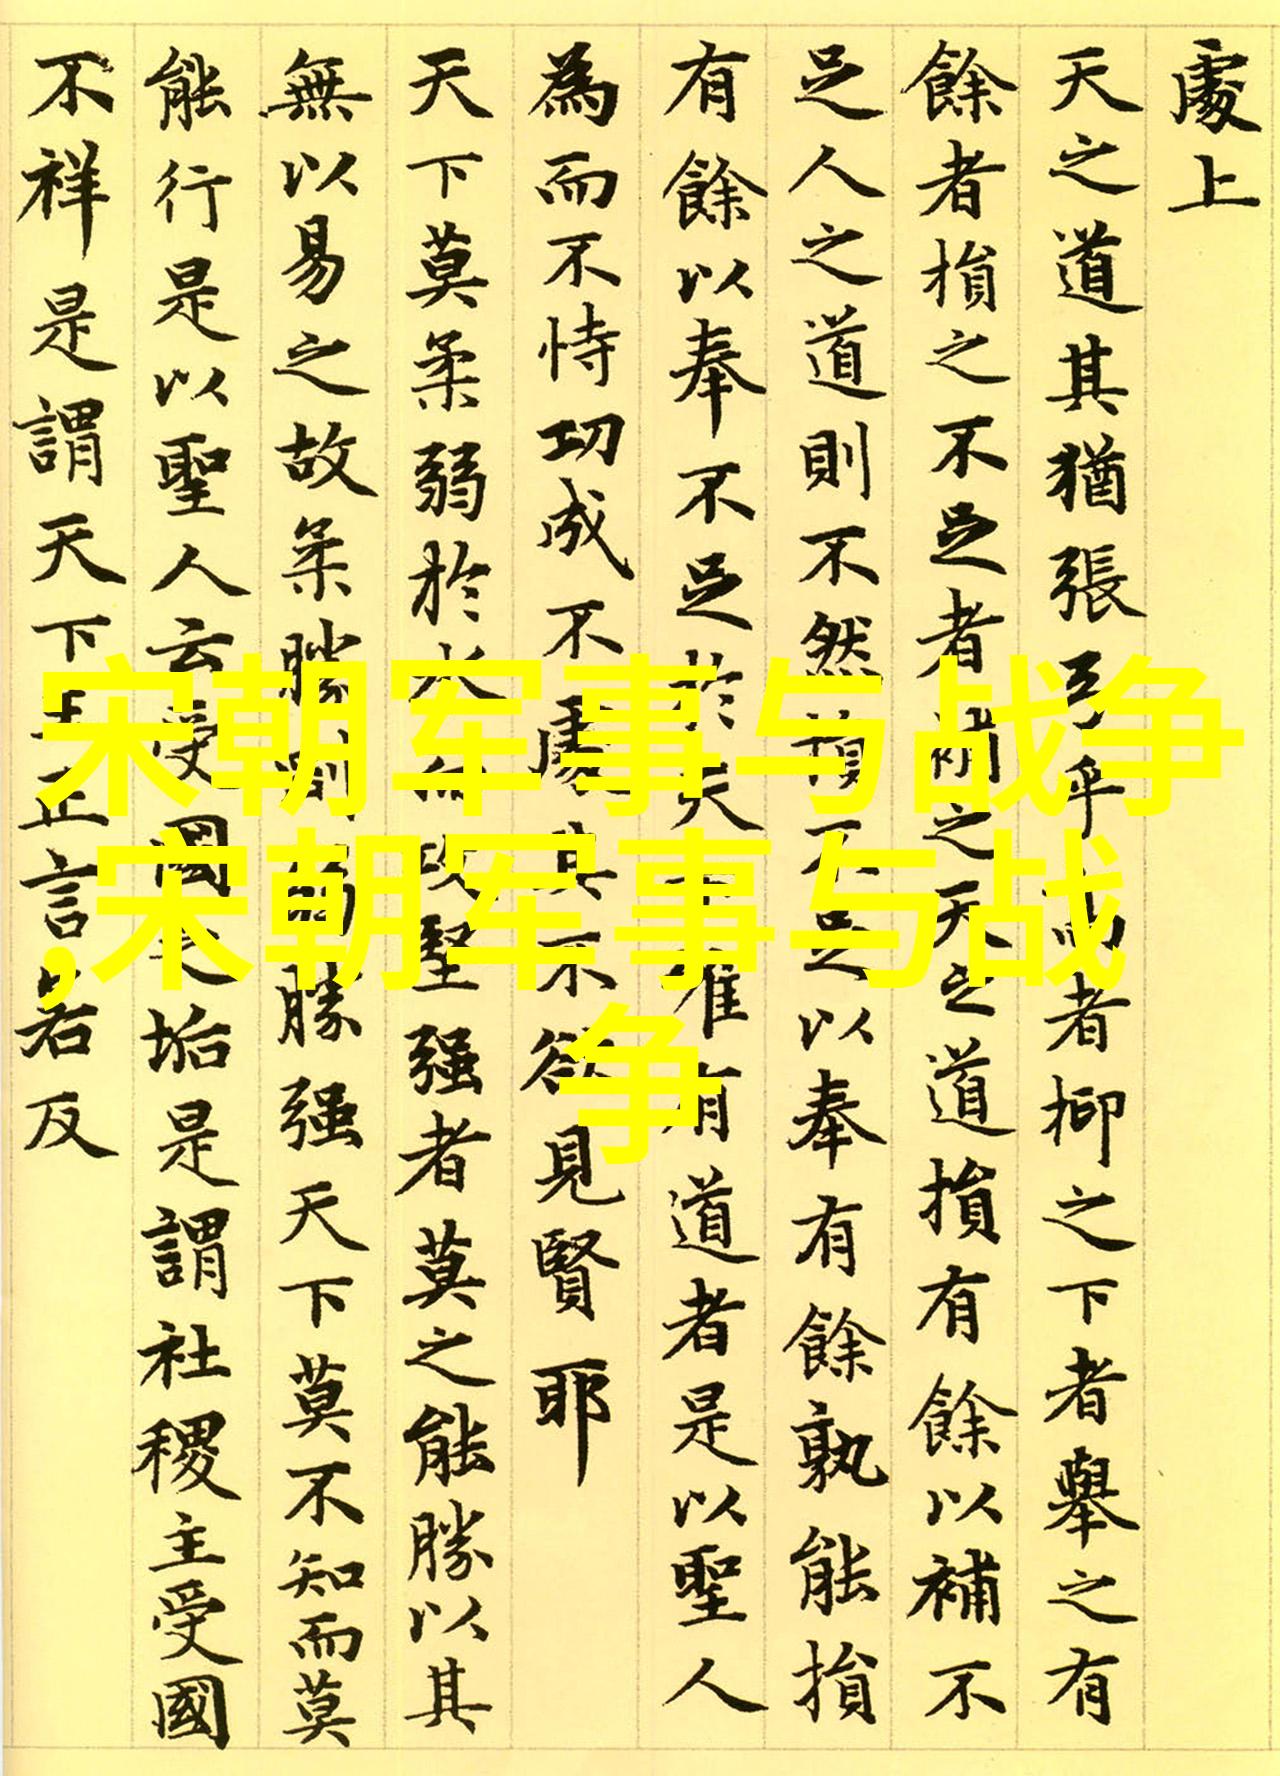 處上
天之道其猶張弓乎高者抑之下者舉之有
餘者損之不足者補之天之道損有餘以補不
足人之道則不然損不足以奉有餘孰能損
有餘以奉不足於天下唯有道者是以聖人
為而不恃功成不處其不欲見賢耶
天下莫柔弱於水而攻堅强者莫之能勝以其
無以易之故柔勝剛弱勝强天下莫不知而莫
能行是以聖人云受國之垢是謂社稷主受國
不祥是謂天下王正言若反
宋朝军事与战争
,宋朝军事与战
争